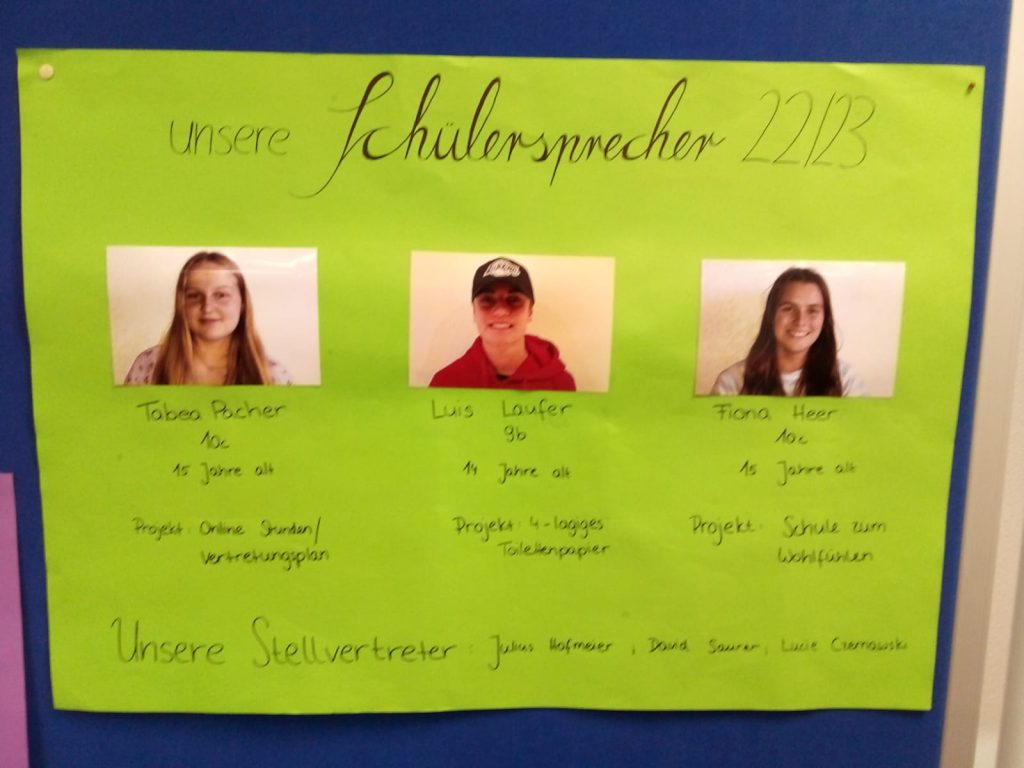 unsere Schülersprecher 22/23
Tabea Pacher
10c
15 Jahre alt
Projekt: Online Stunden/
Vertretungsplan
Luis Laufer
9b
14 Jahre alt
Projekt: 4-lagiges
Toilettenpapier
Fiona Heer
10c
15 Jahre alt
Projekt: Schule zum
Wohlfühlen
Unsere Stellvertreter: Julius Hofmeier, David Saurer, Lucie